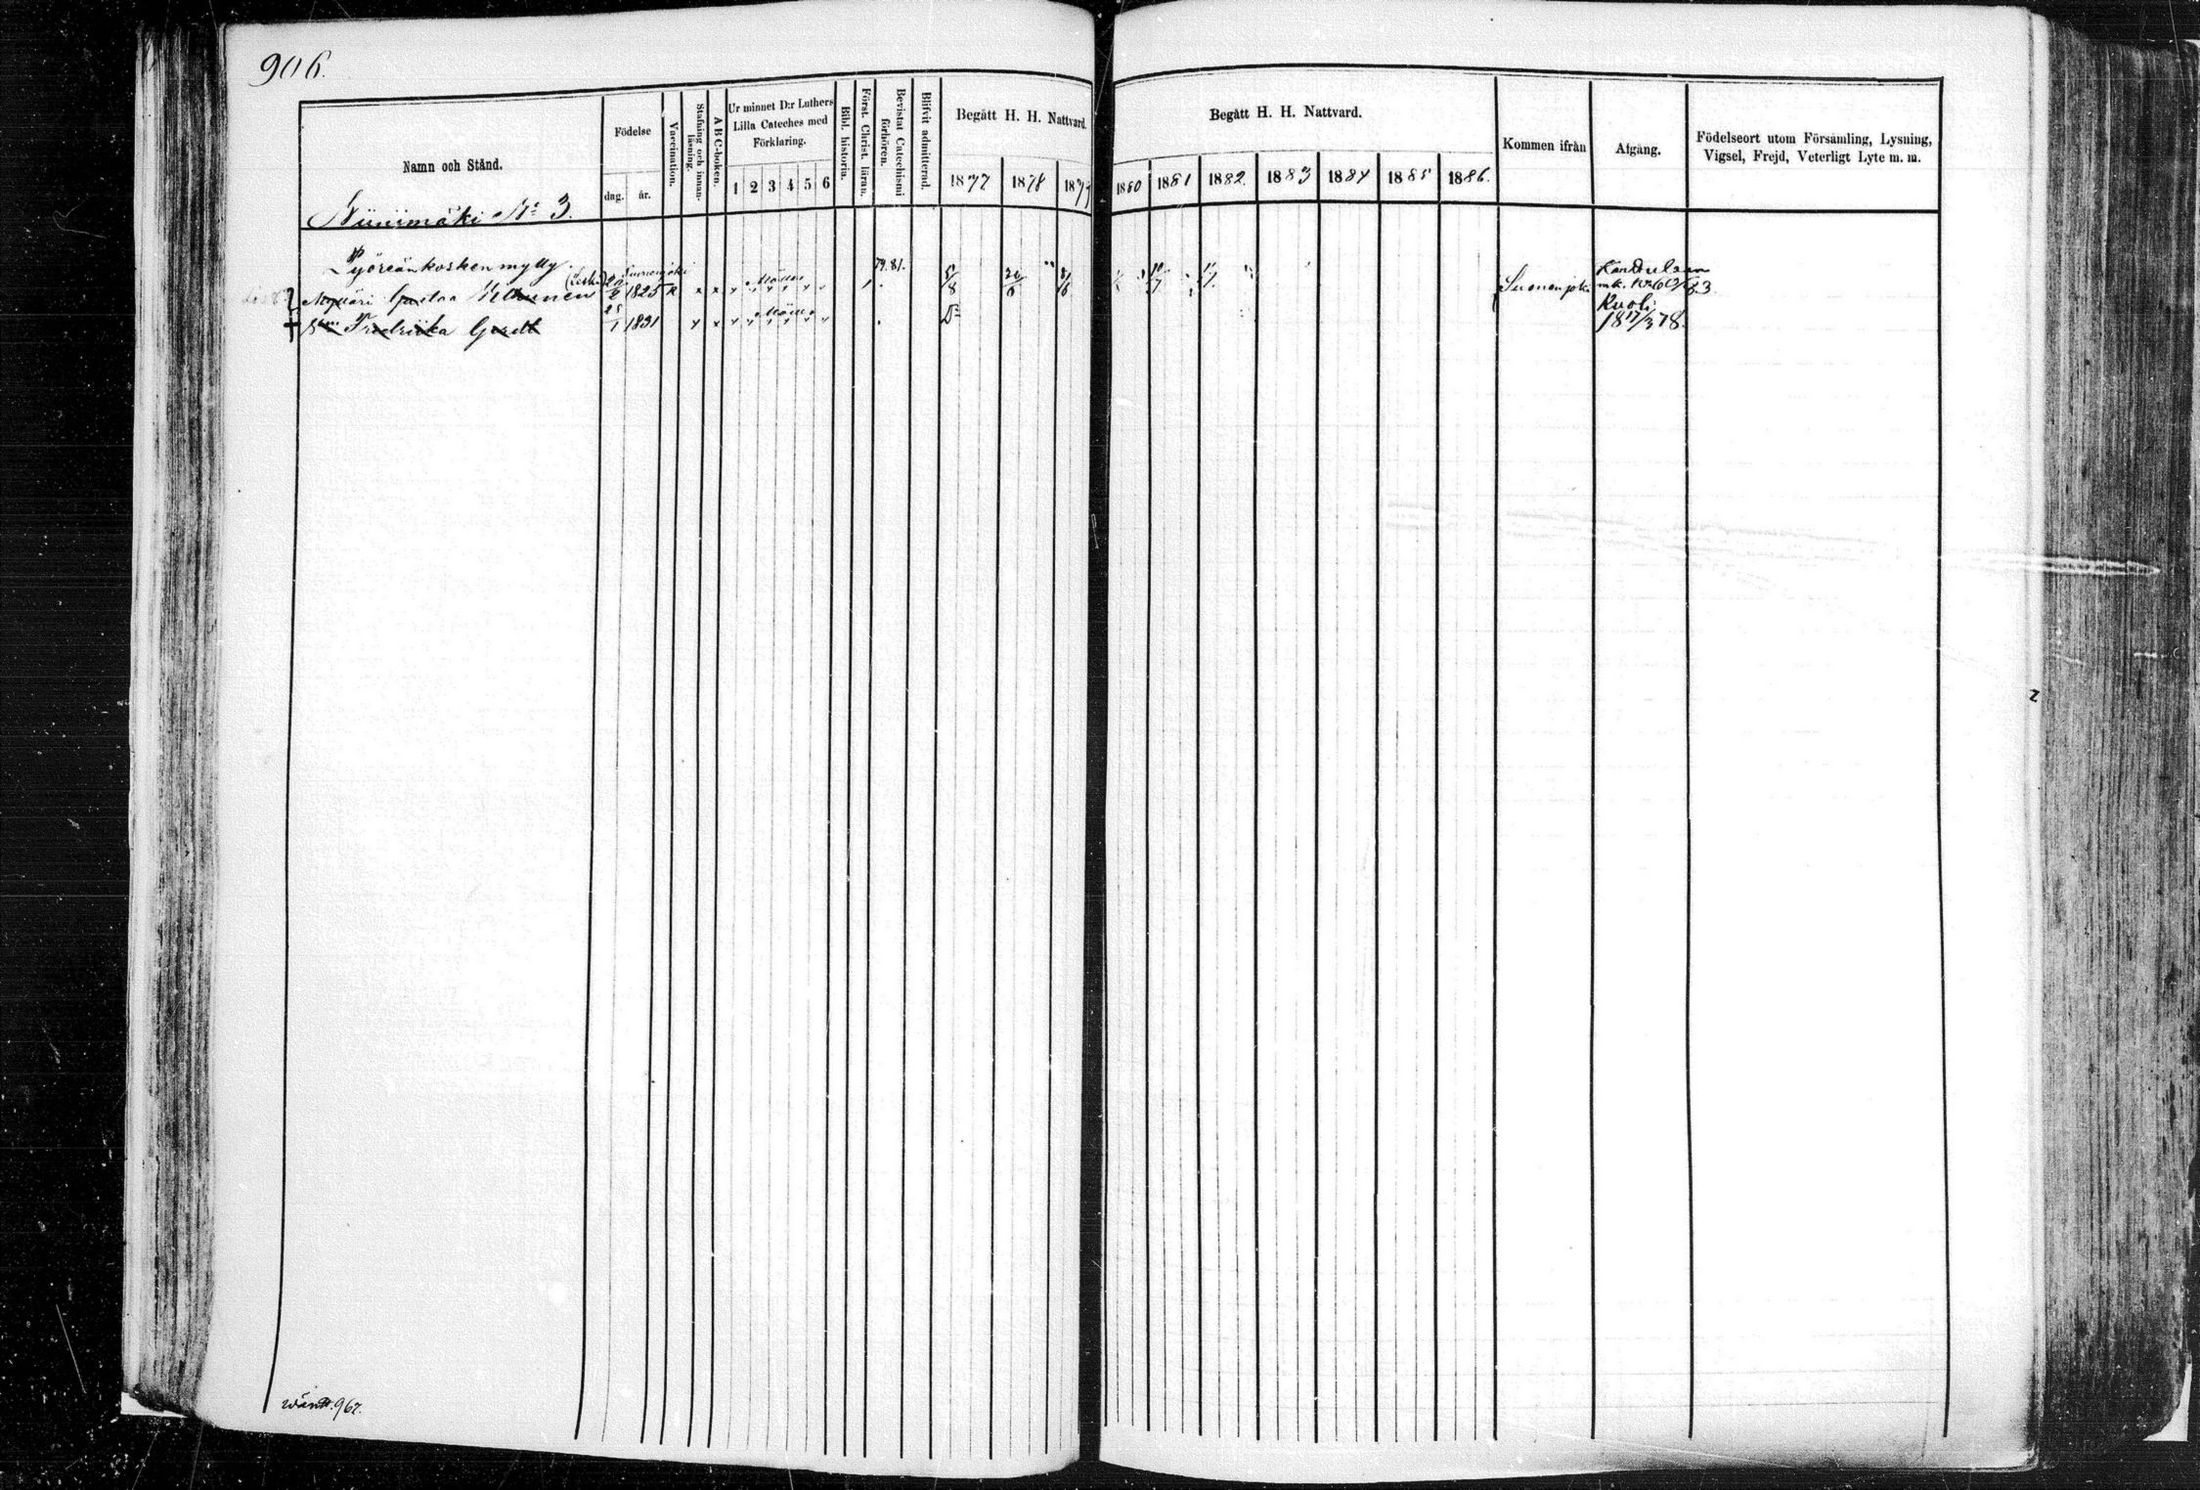 906.
Namn och Stånd.
Födelse
dag.
år.
Vaccination.
Stafning och innan-
läsning.
A B C-boken.
Ur minnet D:r Luthers
Lilla Cateches med
Förklaring.
1 2 3 4 5 6
Bibl. historia.
Först. Christ. läran.
Bevistat Catechismi
förhören.
Blifvit admitterad.
Begått H. H. Nattvard.
1877 1878 1879
Begått H. H. Nattvard.
1880 1881 1882. 1883 1884 1885 1886.
Kommen ifrån
Afgång.
Födelseort utom Församling, Lysning,
Vigsel, Frejd, Veterligt Lyte m. m.
Niinimäki № 3.
Pyöreänkosken mylly.
Suonenjoki
79.81.
(Leski)
Mylläri Gustaa 1825
Suonenjoki
Karttulaan
mk. 83.
V:mo Fredriika Gerdt 28/1 1831
Kuoli
18 17/3 78.
wänd. 967.